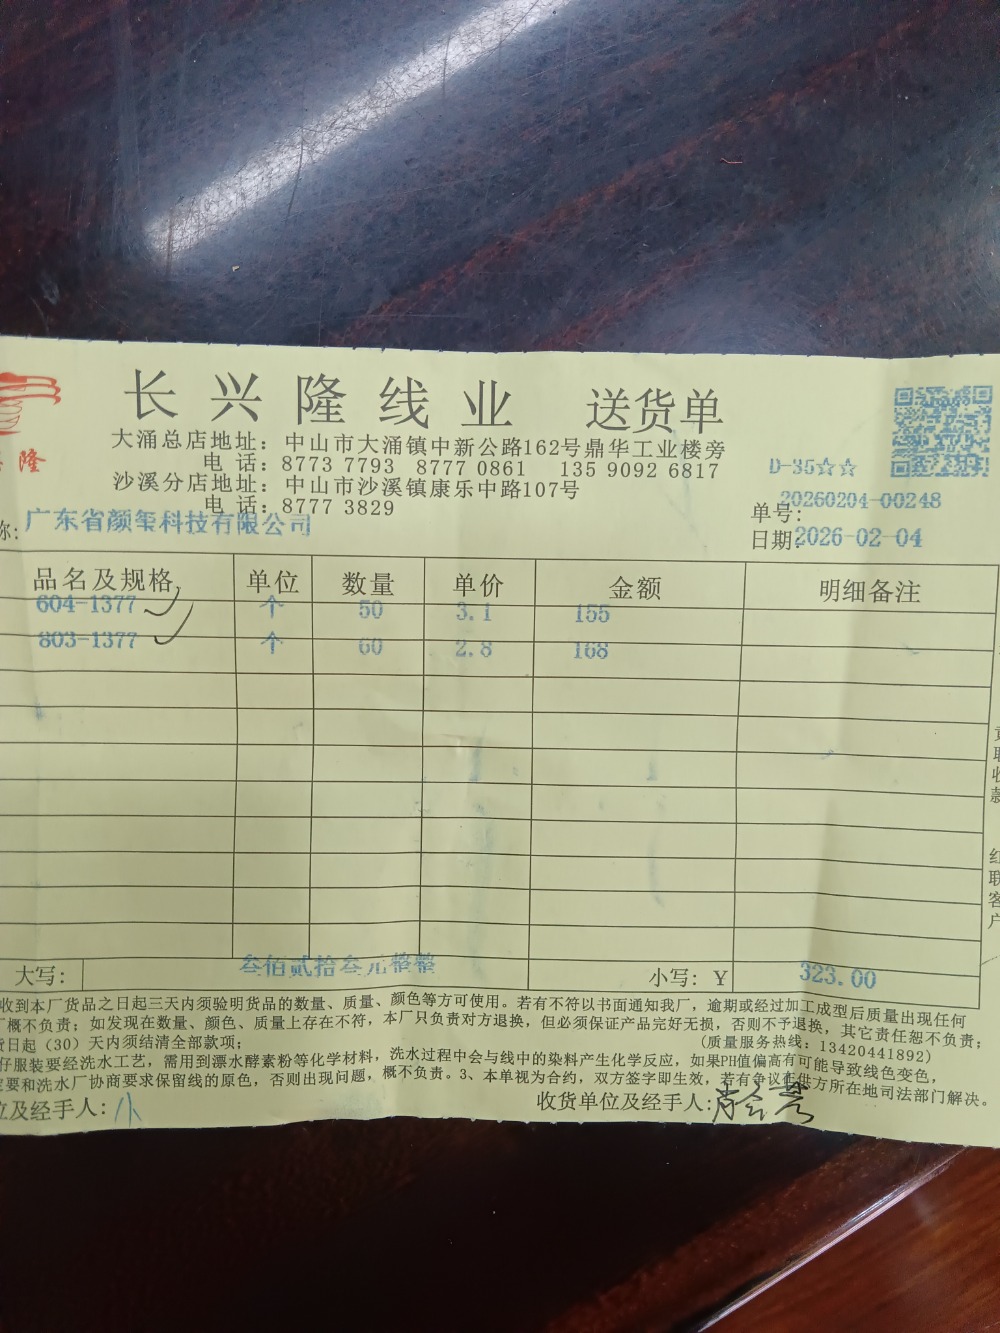 长兴隆线业 送货单
隆
大涌总店地址：中山市大涌镇中新公路162号鼎华工业楼旁
电话：8773 7793 8777 0861 135 9092 6817
D-35☆☆
沙溪分店地址：中山市沙溪镇康乐中路107号
电话：8777 3829
单号：20260204-00248
称：广东省颜玺科技有限公司
日期：2026-02-04
品名及规格 单位 数量 单价 金额 明细备注
604-1377 个 50 3.1 155
803-1377 个 60 2.8 168
大写：叁佰贰拾叁元整整 小写：Y 323.00
收到本厂货品之日起三天内须验明货品的数量、质量、颜色等方可使用。若有不符以书面通知我厂，逾期或经过加工成型后质量出现任何
厂概不负责；如发现在数量、颜色、质量上存在不符，本厂只负责对方退换，但必须保证产品完好无损，否则不予退换，其它责任恕不负责；
日起（30）天内须结清全部款项；
（质量服务热线：13420441892）
仔服装要经洗水工艺，需用到漂水酵素粉等化学材料，洗水过程中会与线中的染料产生化学反应，如果PH值偏高有可能导致线色变色，
要和洗水厂协商要求保留线的原色，否则出现问题，概不负责。3、本单视为合约，双方签字即生效，若有争议供方所在地司法部门解决。
位及经手人： 收货单位及经手人：
收
款
红
联
客
户